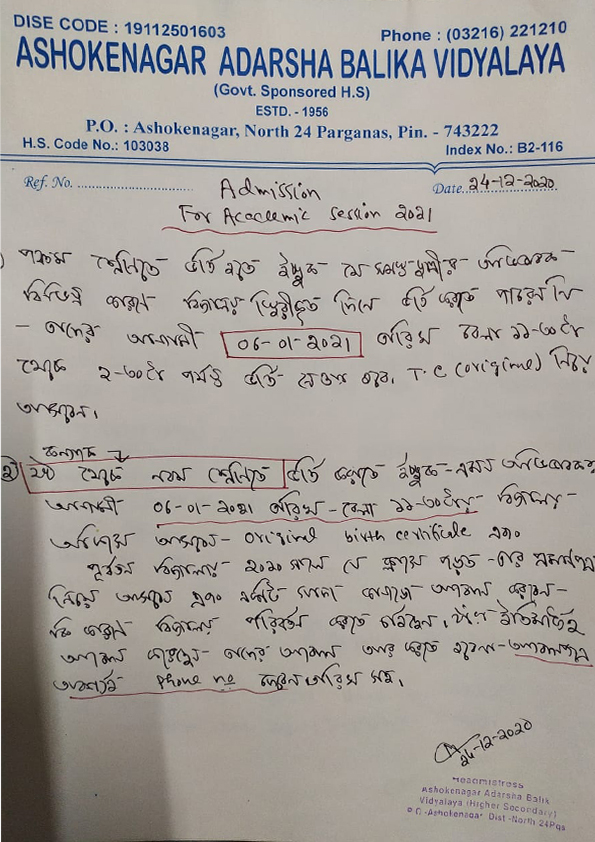 DISE CODE : 19112501603
Phone : (03216) 221210
ASHOKENAGAR ADARSHA BALIKA VIDYALAYA
(Govt. Sponsored H.S)
ESTD. - 1956
P.O. : Ashokenagar, North 24 Parganas, Pin. - 743222
H.S. Code No.: 103038
Index No.: B2-116
Ref. No.
Date. 24-12-2020
Admission
For Academic Session 2021
পঞ্চম শ্রেনিতে ভর্তি হতে ইচ্ছুক যে সমস্ত ছাত্রীর অভিভাবক
বিভিন্ন কারণে বিদ্যালয় স্থিরীকৃত দিনে ভর্তি করতে পারেন নি
- তাদের আগামী 06-01-2021 তারিখ বেলা ১১-৩০টা
থেকে ২-৩০টা পর্যন্ত ভর্তি নেওয়া হবে। T.C (original) নিয়ে
আসবেন।
২) ষষ্ঠ থেকে নবম শ্রেনিতে ভর্তি করতে ইচ্ছুক - এমন
আগামী 06-01-2021 তারিখ - বেলা ১১-৩০টায় বিদ্যালয়-
আসবেন - original birth certificate এবং
পূর্বতন বিদ্যালয়ে ২০২০ সালে যে ক্লাসে পড়ত - তার
নিয়ে আসবেন এবং একটি সাদা কাগজে আবেদন করবেন -
কি কারণে বিদ্যালয় পরিবর্তন করতে চাইছেন। যাঁরা ইতিমধ্যেই
আবেদন করেছেন - তাদের আবেদন আর করতে হবেনা - আবেদনপত্রে
অবশ্যই phone no তারিখ সহ।
24-12-2020
Headmistress
Ashokenagar Adarsha Balik
Vidyalaya (Higher Secondary)
P.O -Ashokenagar Dist -North 24Pgs